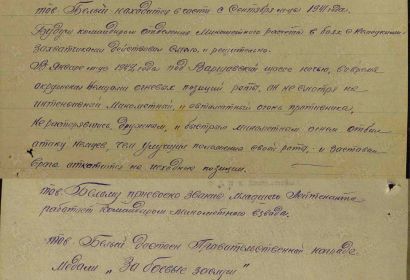 тов. Белый находится в части с сентября м-ца 1941 года.
Будучи командиром отделения минометного расчета в боях с немецкими
захватчиками действовал смело и решительно.
В январе м-це 1942 года под Варшавской шоссе ночью, во время
окружения немцами огневых позиций роты, он не смотря на
интенсивный минометный, и автоматный огонь противника,
не растерявшись, дружным, и быстрым минометным огнем отбил
атаку немцев, чем улучшил положение своей роты и заставил
врага откатится на исходные позиции.
тов. Белому присвоено звание младшего лейтенанта
работает командиром минометного взвода.
тов Белый достоин Правительственной награде
медали „За боевые заслуги"